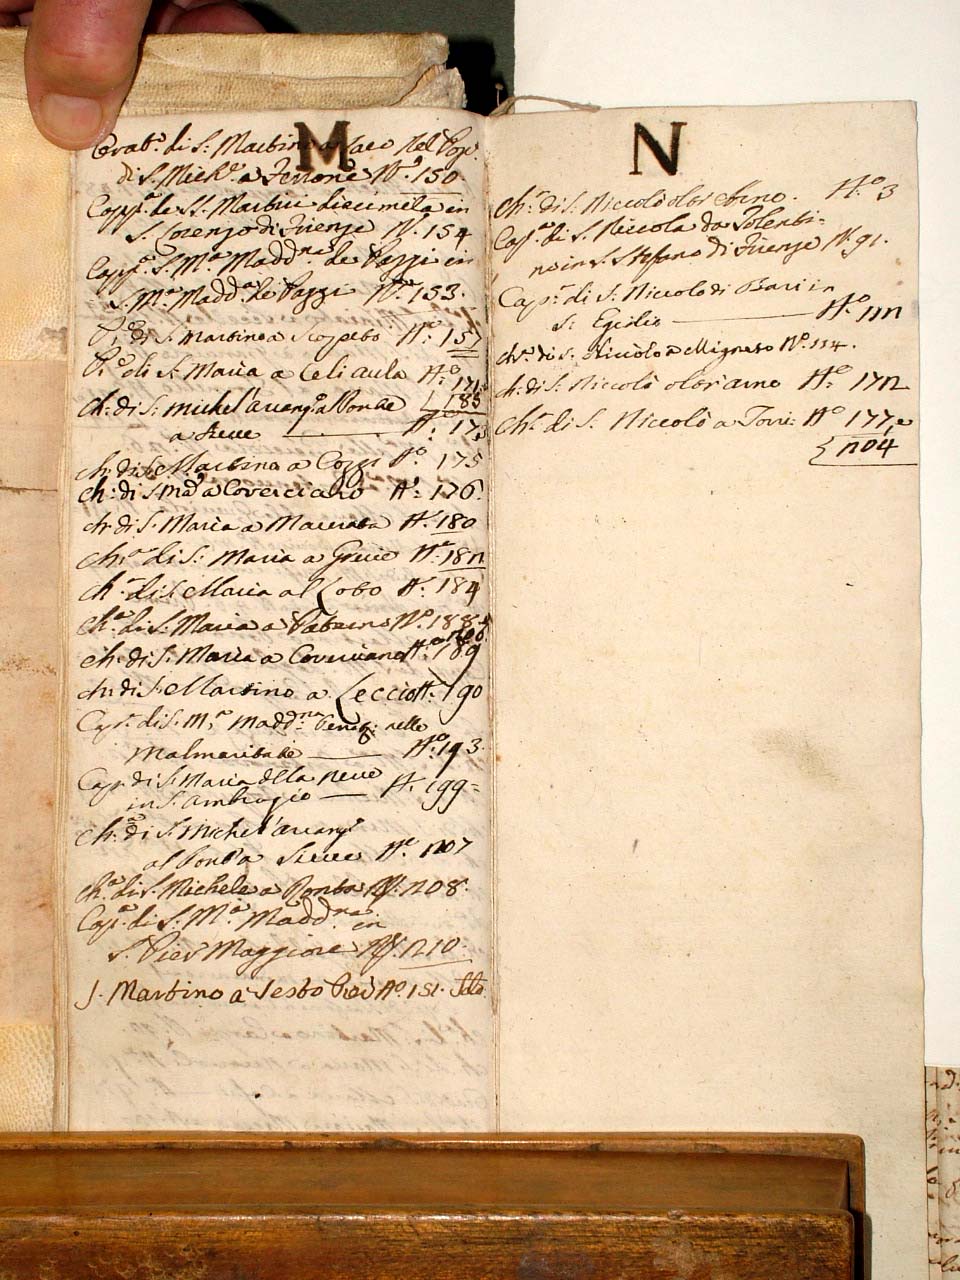 M
di S. Martino a
di S. Mich.e a Nº 150.
Capp.a de SS. Martiri diecimila in
S. Lorenzo di Firenze Nº. 154
Capp.a S. M.a Madd.na de Pazzi in
S. M.a Madd.a de Pazzi Nº. 153.
di S. Martino a Scopeto Nº. 157
di S. Maria a Celiaula Nº 171.
Ch: di S: Michel'arcang.o a Ponte { 185
a Sieve Nº. 173
Ch: di S. Martino a Cozzi Nº. 175
Ch: di S. M.a a Coverciano Nº. 176.
Ch: di S. Maria a Macerata Nº. 180
Ch.a di S: Maria a Greve Nº. 182
Ch.a di S. Maria al Lobo Nº. 184
Ch.a di S. Maria a Nº. 188.
206.
Ch: di S. Maria a Coverciano Nº. 189
Ch: di S. Martino a Leccio Nº. 190
Cap.a di S. M.a Madd.na nelle
Malmaritate Nº. 193.
Cap. di S. Maria della Neve
in S. Ambrogio Nº. 199=
Ch: di S. Michel'arcang.o
al Pont'a Sieve Nº. 207
Ch.a di S. Michele a Ronta Nº. 208.
Cap.a di S. M.a Madd.na in
S. Pier Maggiore Nº. 210.
S. Martino a Sesto Nº. 151.
N
Ch.a di S. Niccolò oltr'Arno. Nº 3
Cap.a di S. Niccola da Tolenti-
no in S. Stefano di Firenze Nº. 91.
Cap.a di S. Niccolò di Bari in
S: Egidio Nº. 112
Ch.a di S. Niccolò a Migneto Nº. 114.
Ch: di S. Niccolò oltr'arno Nº. 172
Ch.a di S. Niccolò a Nº 177, e
{ 204